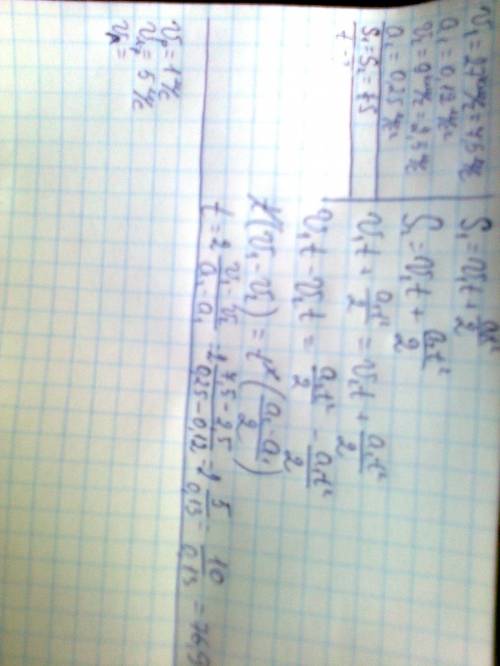 v₁ = 27 км/ч = 7,5 м/с
a₁ = 0,12 м/с²
v₂ = 9 км/ч = 2,5 м/с
a₂ = 0,25 м/с²
S₁ = S₂ = 75
t - ?
S₁ = v₁t + a₁t²/2
S₂ = v₂t + a₂t²/2
v₁t + a₁t²/2 = v₂t + a₂t²/2
v₁t - v₂t = a₂t²/2 - a₁t²/2
t(v₁ - v₂) = t²(a₂ - a₁/2)
t = 2 v₁ - v₂/a₂ - a₁ = 2 7,5 - 2,5/0,25 - 0,12 = 2 5/0,13 = 10/0,13 = 76,9
v₀ = 1 м/с
= 5 м/с